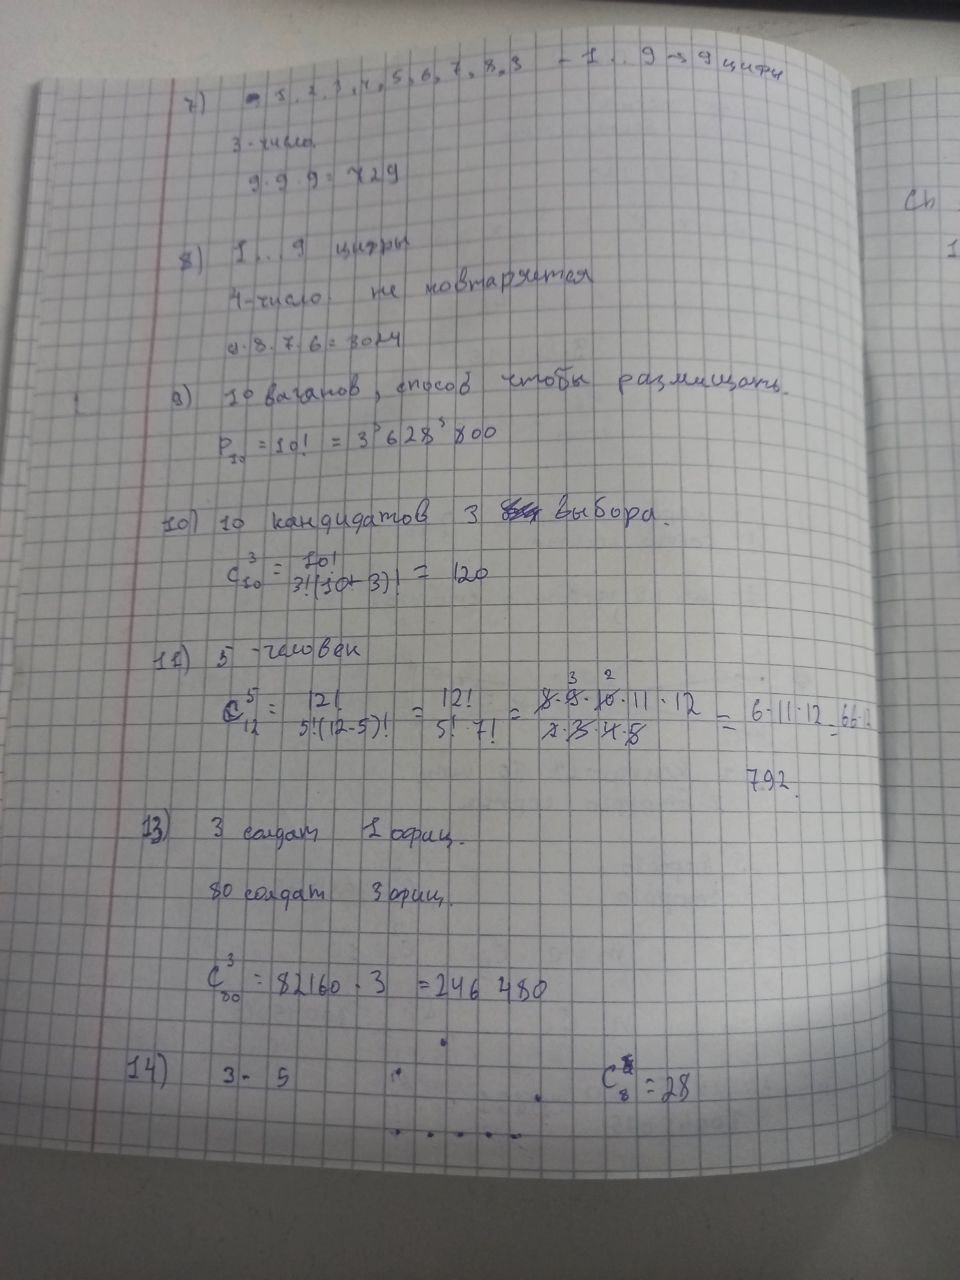 7) 1, 2, 3, 4, 5, 6, 7, 8, 9 - 1..9 → 9 цифры
3-числа
9·9·9=729
8) 1..9 цифры
4-число не мовтаряется
9·8·7·6=3024
9) 10 ваганов, способ чтобы размищать.
P₁₀ = 10! = 3 628 800
10) 10 кандидатов 3 выбора.
C³₁₀ = 10! / 3!(10-3)! = 120
11) 5 -человек
C⁵₁₂ = 12! / 5!(12-5)! = 12! / 5!·7! = 8·9·10·11·12 / 2·3·4·5 = 6·11·12 = 66·
3 2
792.
13) 3 солдат 1 офиц.
80 солдат 3 офиц.
C³₈₀ = 82160 · 3 = 246 480
14) 3 - 5 C₈ = 28
Ch
1